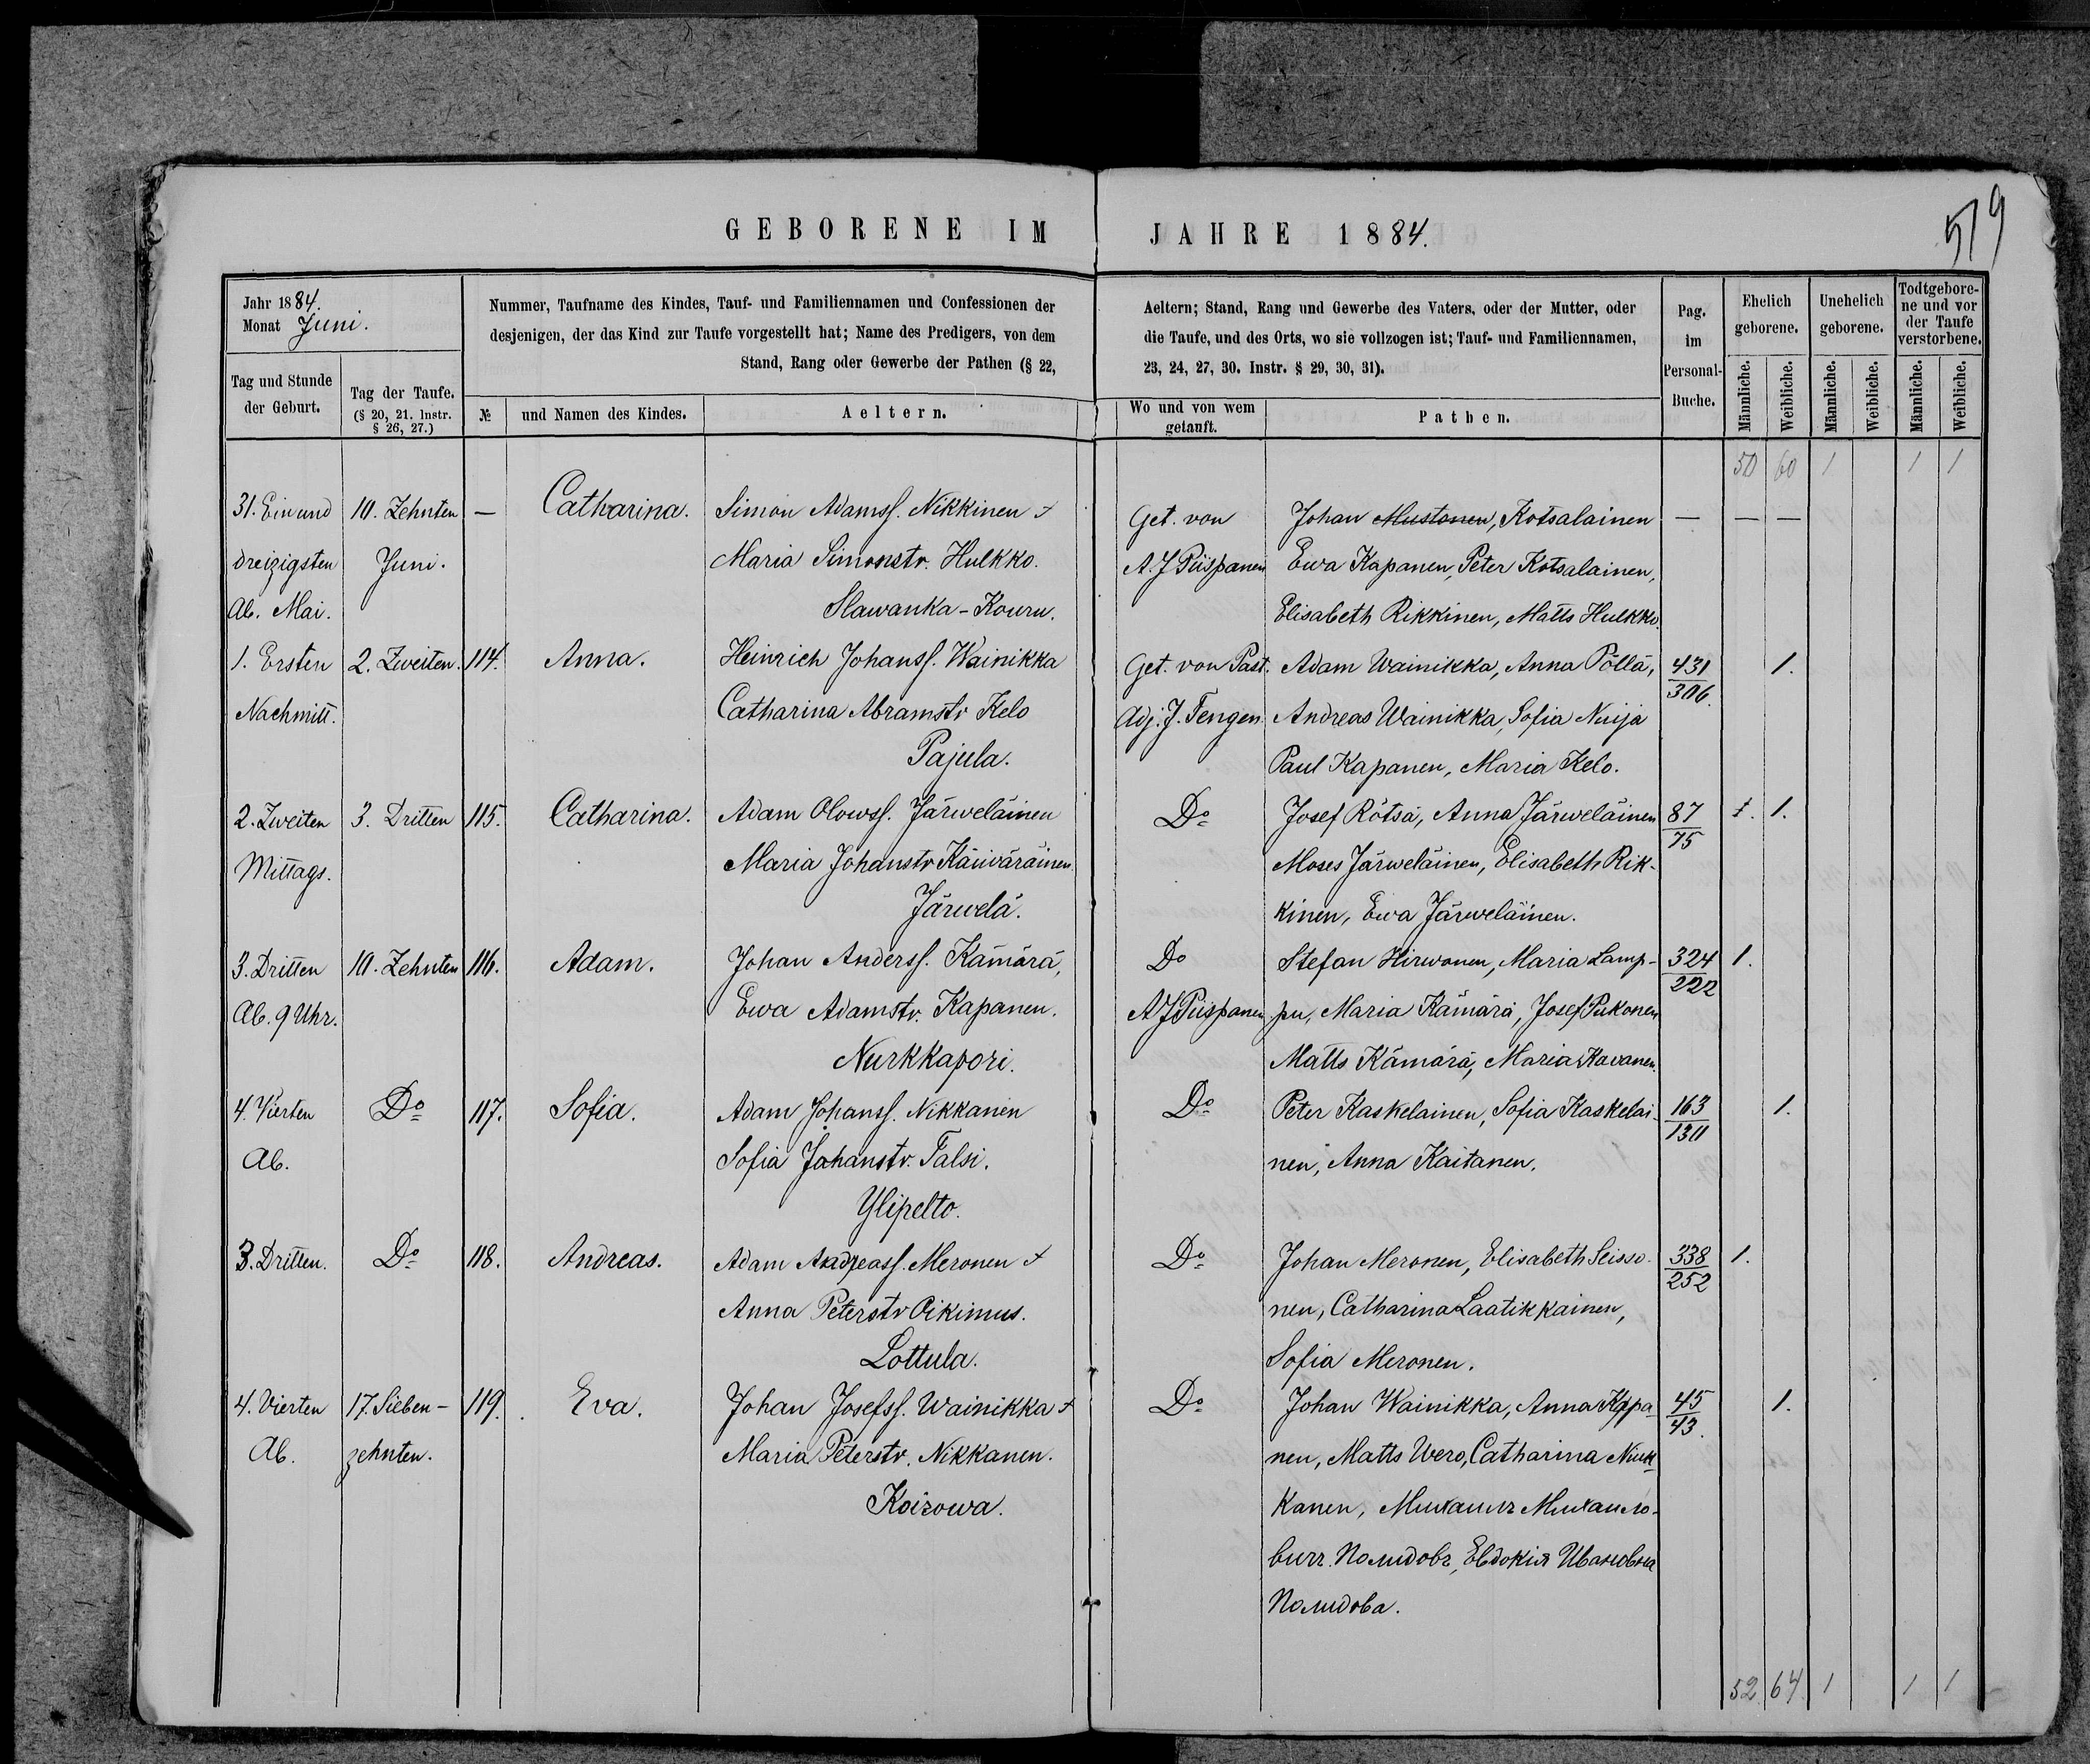 GEBORENE IM JAHRE 1884.
519
Jahr 1884.
Monat Juni.
Nummer, Taufname des Kindes, Tauf- und Familiennamen und Confessionen der
desjenigen, der das Kind zur Taufe vorgestellt hat; Name des Predigers, von dem
Stand, Rang oder Gewerbe der Pathen (§ 22,
Aeltern; Stand, Rang und Gewerbe des Vaters, oder der Mutter, oder
die Taufe, und des Orts, wo sie vollzogen ist; Tauf- und Familiennamen,
23, 24, 27, 30. Instr. § 29, 30, 31).
Pag. im Personal-Buche.
Ehelich geborene.
Unehelich geborene.
Todtgebore-
ne und vor
der Taufe
verstorbene.
Tag und Stunde
der Geburt.
Tag der Taufe.
(§ 20, 21. Instr.
§ 26, 27.)
№ und Namen des Kindes.
Aeltern.
Wo und von wem
getauft.
Pathen.
Männliche. Weibliche. Männliche. Weibliche. Männliche. Weibliche.
50 60 1 1 1
31. Einund 10. Zehnten — Catharina. Simon Adamss. Nikkinen + Get. von Johan Mustonen, Kotsalainen — — —
dreizigsten Juni. Maria Simonstr. Hulkko. A. J Piispanen Ewa Kapanen, Peter Kotsalainen,
Ab. Mai. Slawanka-Kouru. Elisabeth Rikkinen, Matts Hulkko.
1. Ersten 2. Zweiten. 114. Anna. Heinrich Johanss. Wainikka Get. von Past. Adam Wainikka, Anna Pöllä, 431/306. 1.
Nachmitt. Catharina Abramstr Kelo Adj. J. Tengen. Andreas Wainikka, Sofia Nuija
Pajula. Paul Kapanen, Maria Kelo.
2. Zweiten 3. Dritten 115. Catharina. Adam Olowss. Järweläinen Do Josef Rötsä, Anna Järweläinen 87/75 1. 1.
Mittags. Maria Johanstr Käiwäräinen Moses Järweläinen, Elisabeth Rik-
Järwelä. kinen, Ewa Järweläinen.
3. Dritten 10. Zehnten 116. Adam. Johan Anderss. Kämärä, Do Stefan Hirwonen, Maria Lamp- 324/222 1.
Ab. 9 Uhr. Ewa Adamstr. Kapanen. A J Piispanen pu, Maria Kämärä, Josef Pukonen
Nurkkapori. Matts Kämärä, Maria Kavanen.
4. Vierten Do 117. Sofia. Adam Johanss. Nikkanen Do Peter Kaskelainen, Sofia Kaskelai- 163/130 1.
Ab. Sofia Johanstr. Talsi. nen, Anna Kaitanen.
Ylipelto.
3. Dritten. Do 118. Andreas. Adam Andreass. Meronen + Do Johan Meronen, Elisabeth Seisso- 338/252 1.
Anna Peterstr Oikimus. nen, Catharina Laatikkainen,
Lottula. Sofia Meronen.
4. Vierten 17. Sieben- 119. Eva. Johan Josefss. Wainikka + Do Johan Wainikka, Anna Kapa- 45/43. 1.
Ab. zehnten. Maria Peterstr. Nikkanen. nen, Matts Wero, Catharina
Koirowa. kanen, Михаилъ Михаило-
вичъ Полидовъ, Евдокія Ивановна
Полидова.
52 64 1 1 1